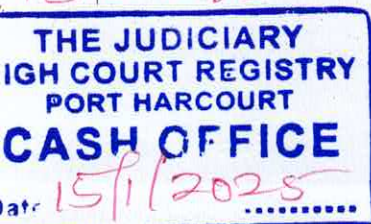 THE JUDICIARY
IGH COURT REGISTRY
PORT HARCOURT
CASH OFFICE
Date 15/1/2025